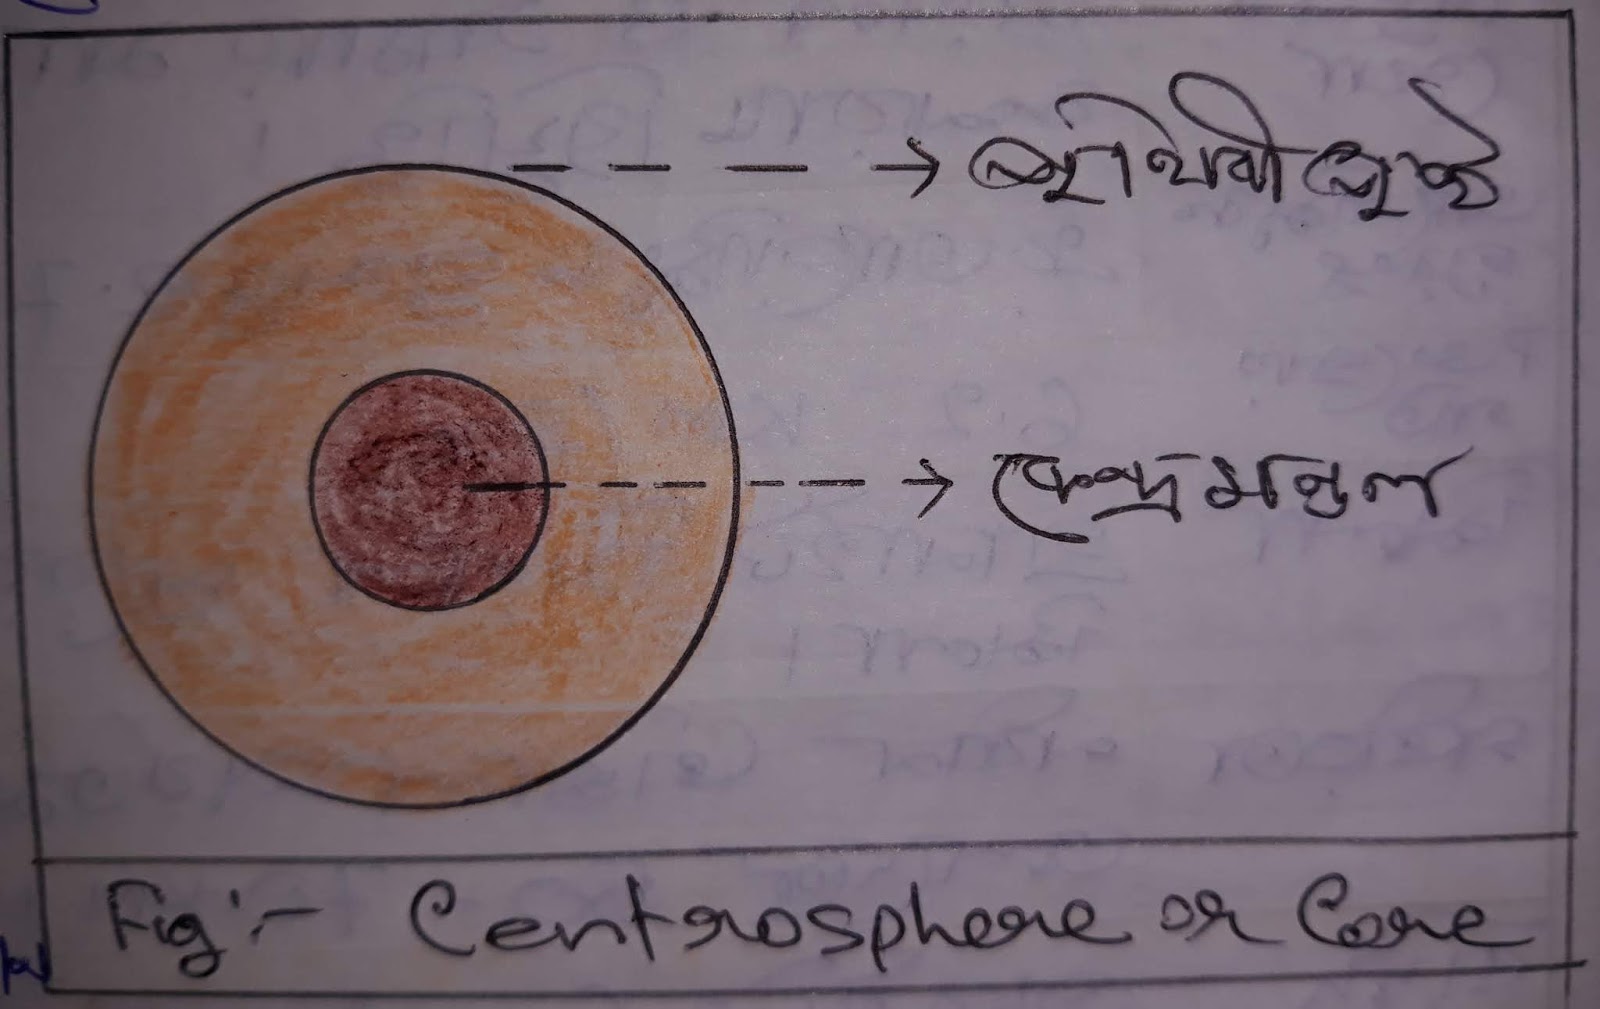 পৃথিবীপৃষ্ঠ
কেন্দ্রমন্ডল
Fig:- Centrosphere or Core